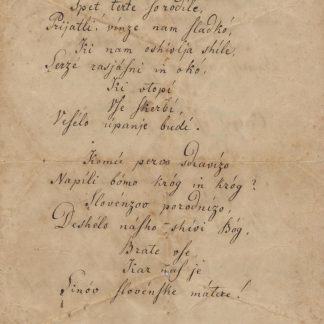 Spet terte ſorodile,
Prijatli! vinze nam ſladkó,
Ki nam oshivlja shile,
Serze rasjáſni in okó,
Ki vtopí
Vſe ſkerbí
Veſélo upanje budí.
Komú pervo sdravizo
Napíli bómo króg in króg?
Slovénzov porodnízo,
Deshélo náſho shivi Bóg,
Brate vſe
Kar naſ je
Sinov ſlovénſke mátere!